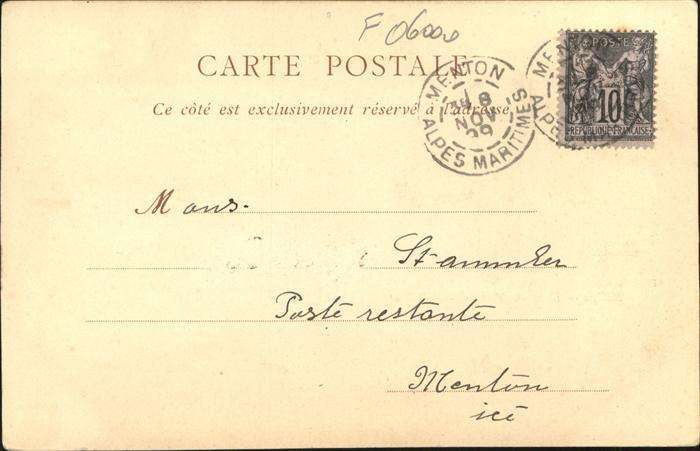 F 06000
CARTE POSTALE
Ce côté est exclusivement réservé à l'adresse
MENTON
8
NOV
ALPES MARITIMES
POSTE
10
REPUBLIQUE FRANCAISE
Mons.
Stammler
Poste restante
Menton
ice